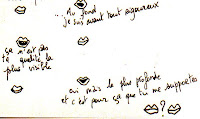 ... Au fond
Je suis avant tout rigoureux
ça n'est pas
ta qualité la
plus visible
oui mais la plus profonde
et c'est pour ça que tu me supportes
?